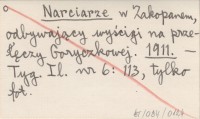 Narciarze w Zakopanem,
odbywający wyścigi na prze-
łęczy Goryczkowej. 1911. —
Tyg. Il. nr 6: 113, tylko
fot.